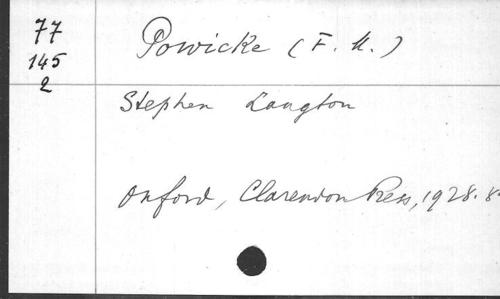 77
145
2
Powicke (F. M.)
Stephen Langton
Oxford, Clarendon Press, 1928. 8°